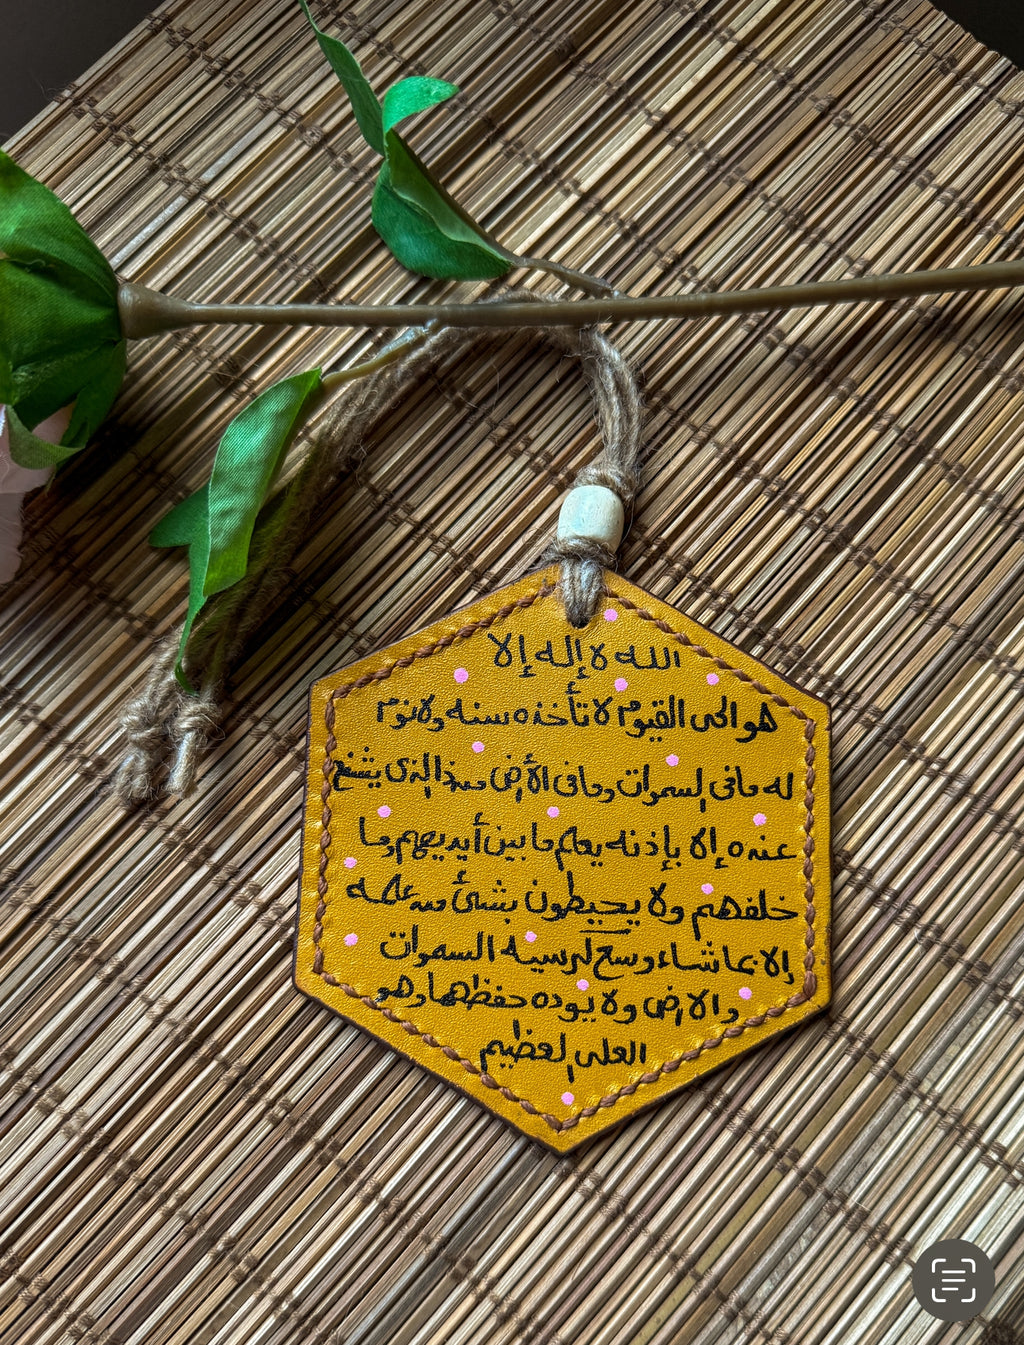 الله لا إله إلا
هو الحى القيوم لا تأخذه سنه ولا نوم
له مافى السموات ومافى الأرض من ذا الذى يشفع
عنده إلا بإذنه يعلم ما بين أيديهم وما
خلفهم ولا يحيطون بشئ من علمه
إلا بما شاء وسع كرسيه السموات
والارض ولا يوده حفظهما وهو
العلى العظيم